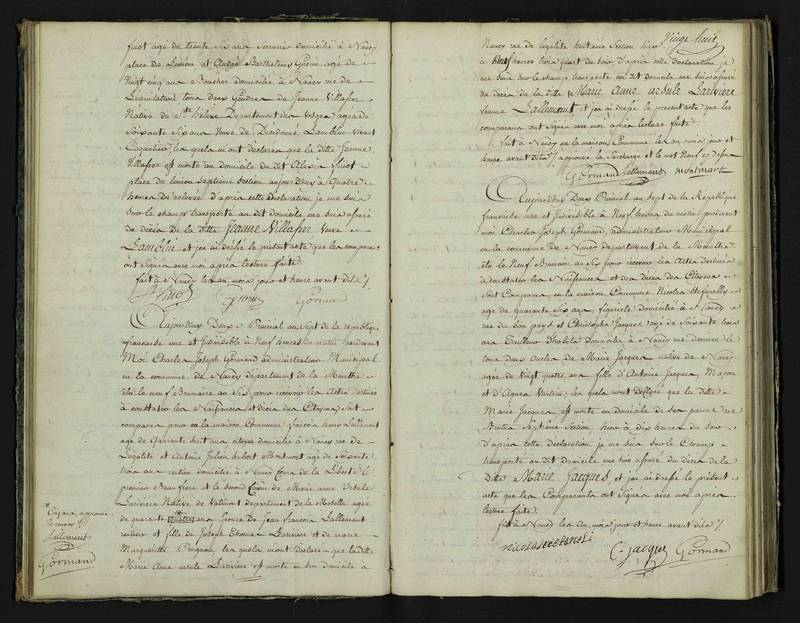 agé de trente six ans Serrurier domicilié à Nancy
place de Limon et André Barthelemy Grévin agé de
Vingt cinq ans Boucher domicilié à Nancy rue de
Législation tous deux Gendres de Jeanne Villasser
Native de Ste hélene Departement des Vosges agée de
Soixante six ans Veuve de Dieudonné Lamblin Vivant
Coquetier, les quels m'ont déclaré que la ditte Jeanne
Villasser est morte au domicile du dit Alexis
place de l'union septieme section aujourd'huy à Quatre
heures de relevée d'après cette déclaration je me suis
sur le champ transporté au dit domicile me suis assuré
du décès de la ditte Jeanne Villasser Veuve
Lamblin et j'ai dressé le présent acte que les comparans
ont signés avec moi après lecture faite
fait à Nancy les an mois jour et heure avant dits
Gormand
Aujourdhuy Deux Prairial an Sept de la république
française une et indivisible à Neuf heures du matin pardevant
Moi Charles Joseph Gormand administrateur Municipal
en la commune de Nancy département de la Meurthe
élu le neuf Brumaire an Six pour recevoir les Actes destinés
à constater les Naissances et décès des Citoyens Sont
comparus en la maison Commune françois Lallement
agé de Quarante huit ans citoyen domicilié à Nancy rue de
L'égalité et Antoine Julien hubert Montmort agé de Soixante
trois ans rentier domicilié à Nancy Cours de la Liberté le
premier frere et le second Cousin de Marie anne Ursule
Lariviere Native de Vatimont departement de la Moselle agée
de quarante ans Epouse de Jean francois Lallement
rentier et fille de Joseph Lariviere et de marie
Marguerite les quels m'ont déclaré que la ditte
Marie Anne ursule Lariviere est morte en son domicile à
Cinq ans approuvé
Lallement
Gormand
Vingt huit
Nancy rue de l'egalité huitieme Section hier
à heures trois quart du soir d'après cette declaration je
me suis sur le champ transporté au dit domicile me suis assuré
du décès de la ditte Marie Anne ursule Lariviere
femme Lallement et j'ai dressé le present acte que les
comparans ont signés avec moi après lecture faite
fait à Nancy en la maison Commune les an mois jour et
heure avant dits approuvé la surcharge et le mot Neuf
Gormand Lallement montmort
Aujourdhuy Deux Prairial an sept de la République
française une et indivisible à Neuf heures du matin pardevant
moi Charles Joseph Gormand, administrateur Municipal
en la commune de Nancy Departement de la Meurthe
élu le Neuf Brumaire an Six pour recevoir les Actes destinés
à constater les Naissances et des Décès des Citoyens
Sont Comparus en la maison Commune Nicolas Stefanelly
agé de quarante six ans figuriste domicilié à Nancy
rue du bon pays et Christophe Jacques agé de Soixante trois
ans Tailleur d'habits Domicilié à Nancy
tous deux oncles de Marie Jacques native de Nancy
agée de Vingt quatre ans fille d'Antoine Jacques, Maçon
et d'Agnes les quels mont déclaré que la ditte
Marie Jacques est morte au domicile de ses parens rue
Septieme Section hier à dix heures du soir
D'après cette déclaration je me suis sur le Champ
transporté au dit Domicile me suis assuré du décès de la
Ditte Marie Jacques et j'ai dressé le présent
acte que les Comparans ont Signés avec moi après
lecture faite.
fait à Nancy les An, mois jour et heure avant dits
Nicolas Stefaneli
C. jacques Gormand